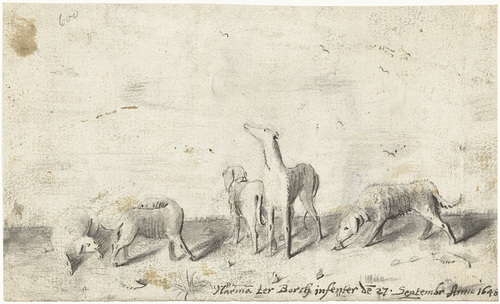 600
Harmen ter Borch inventer de 27. Septembr Anno 1648